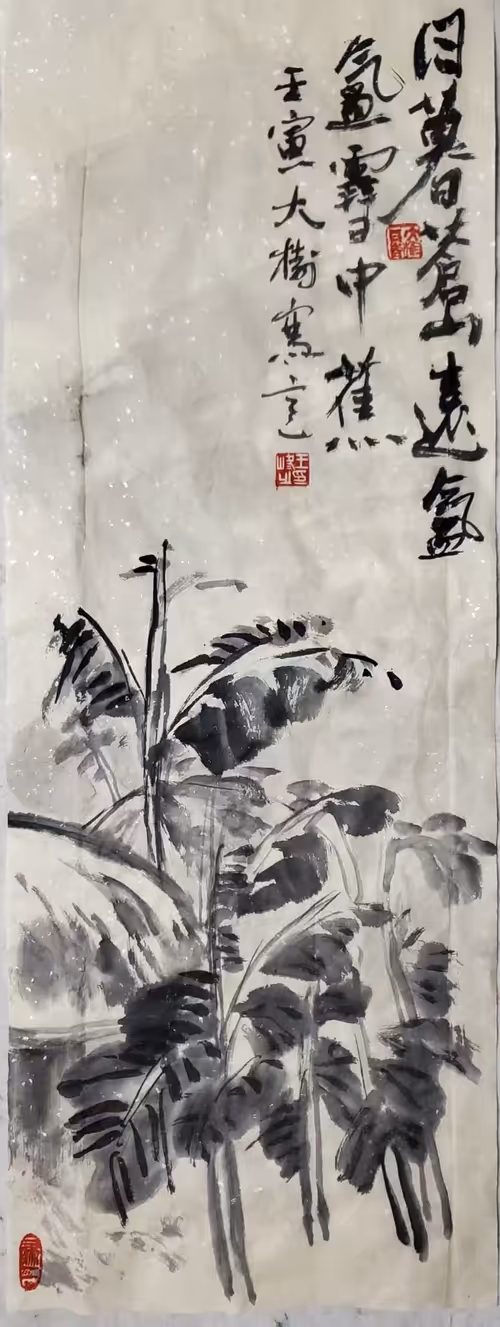 日暮蒼山遠氤
氳雪中蕉
壬寅大樹寫意